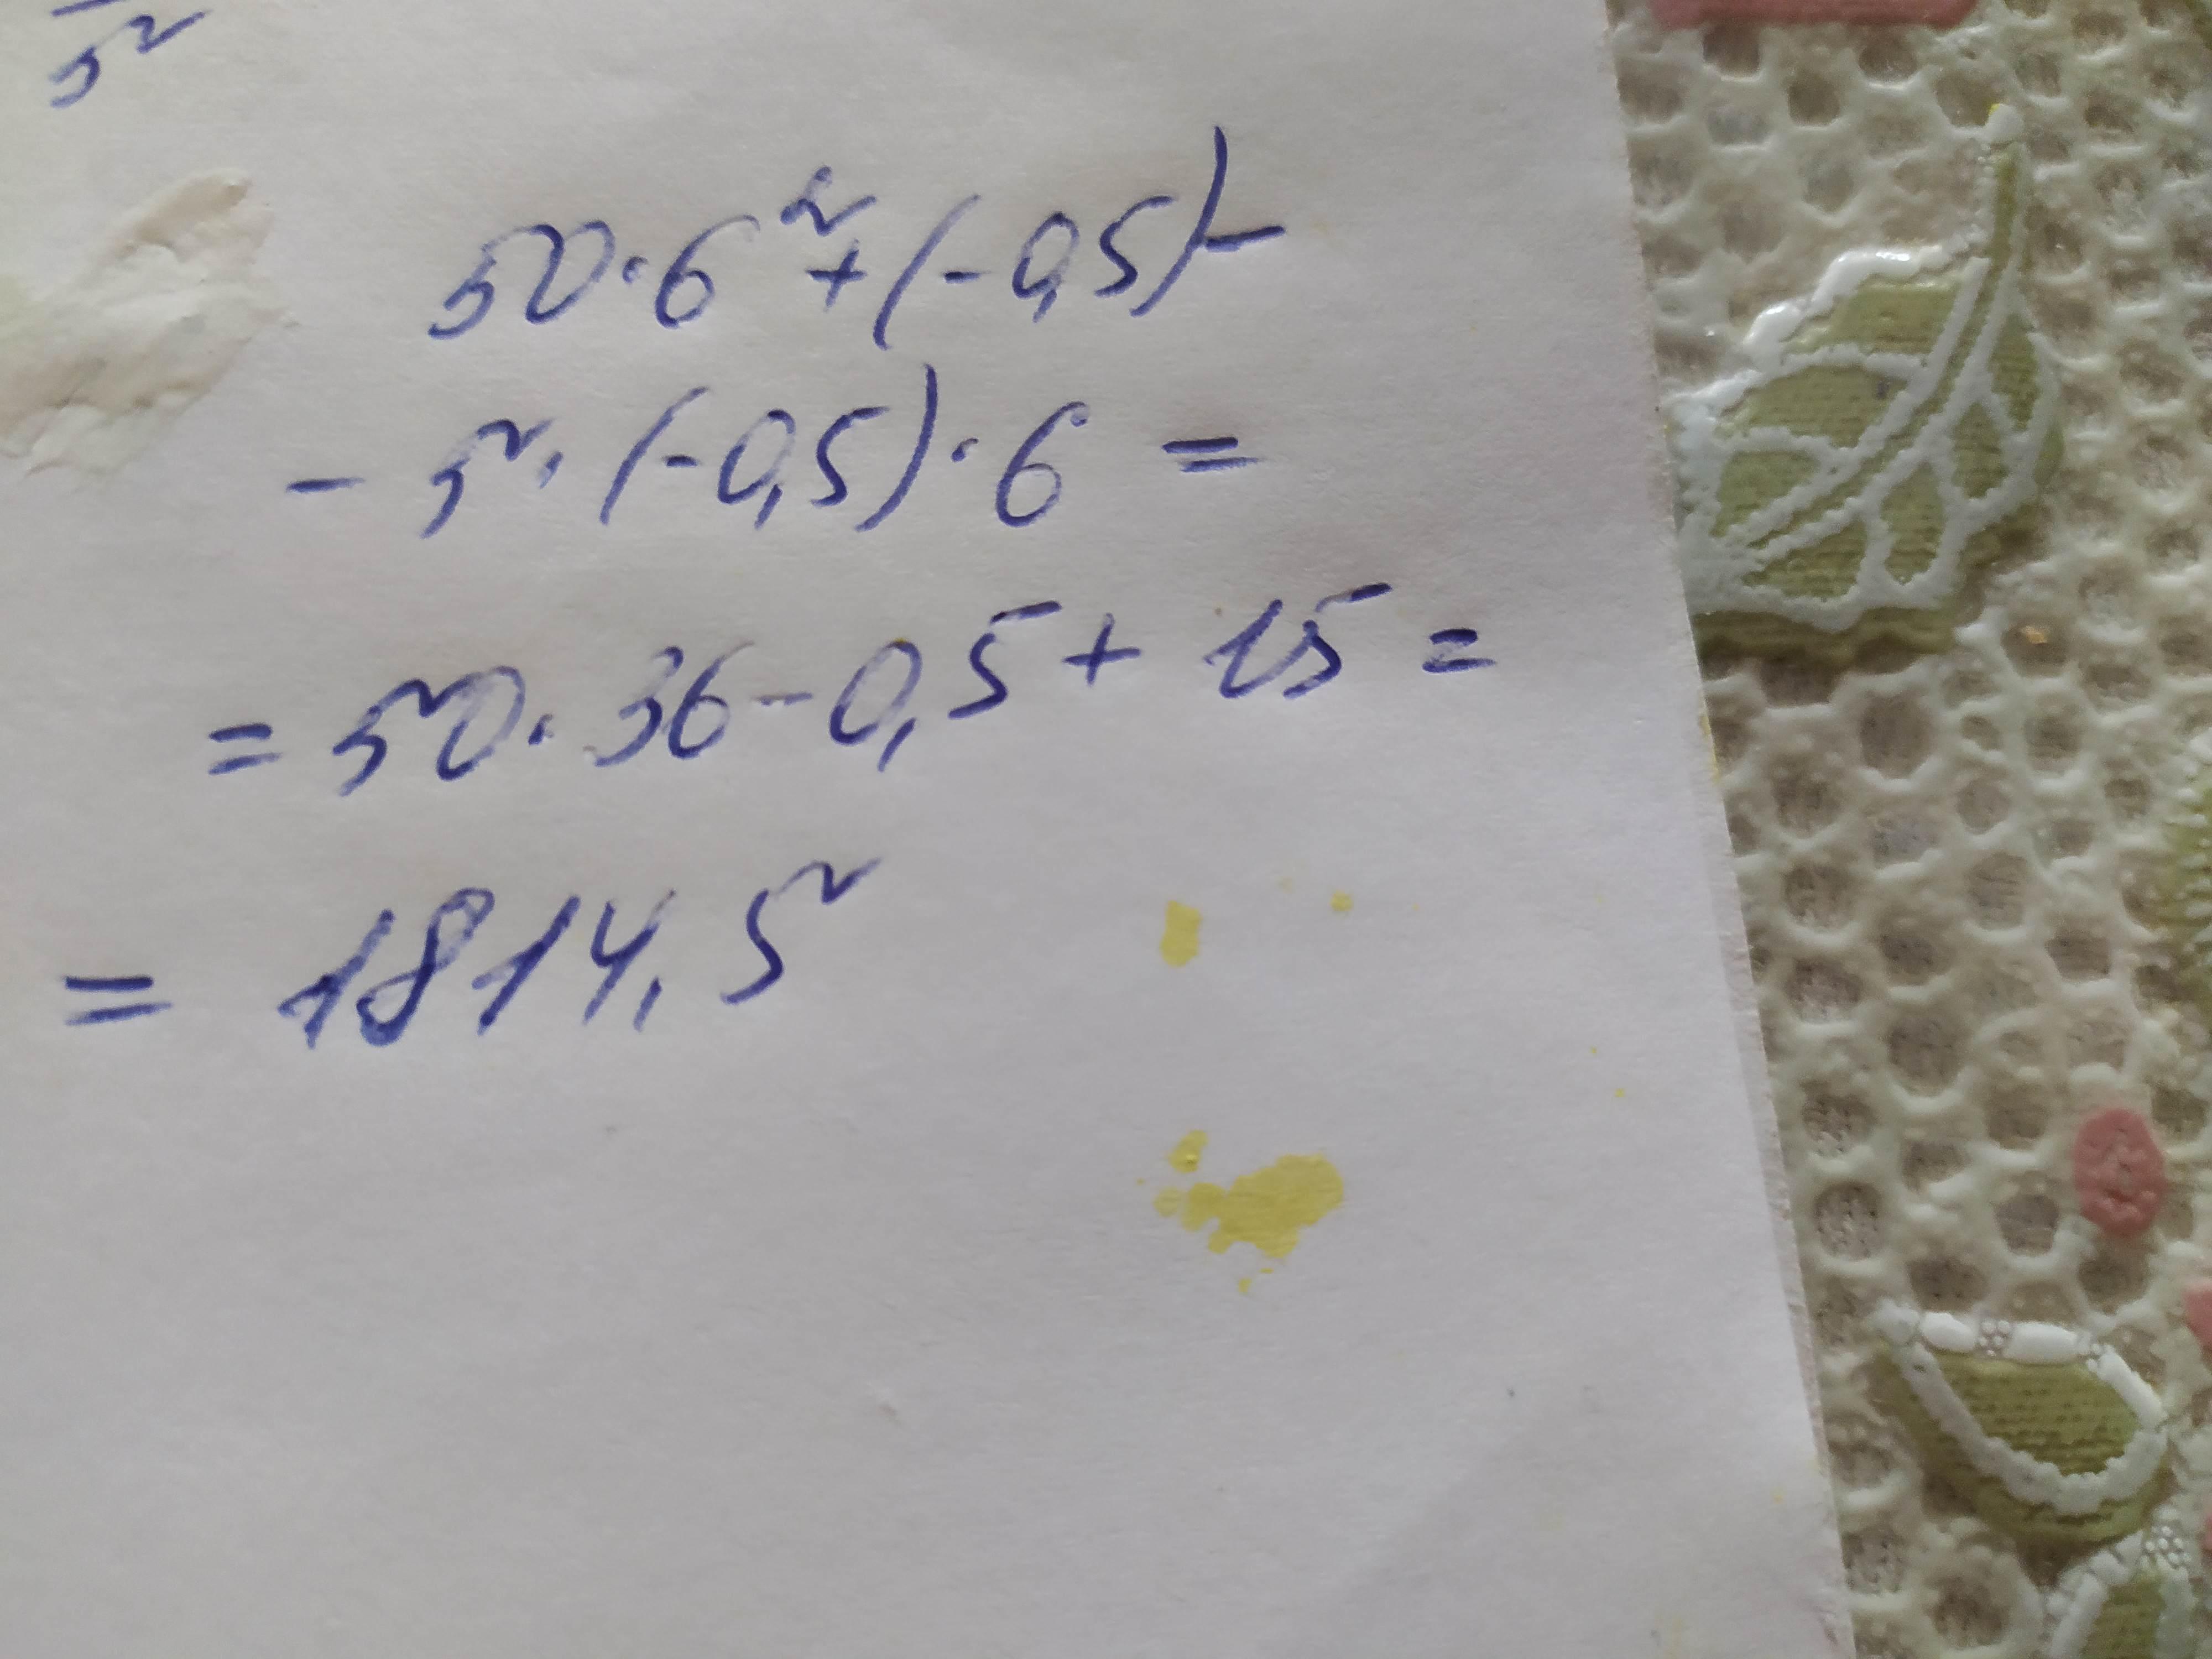 5
50·6²+(-0,5)-
-5·(-0,5)·6=
=50·36-0,5+15=
=1814,5